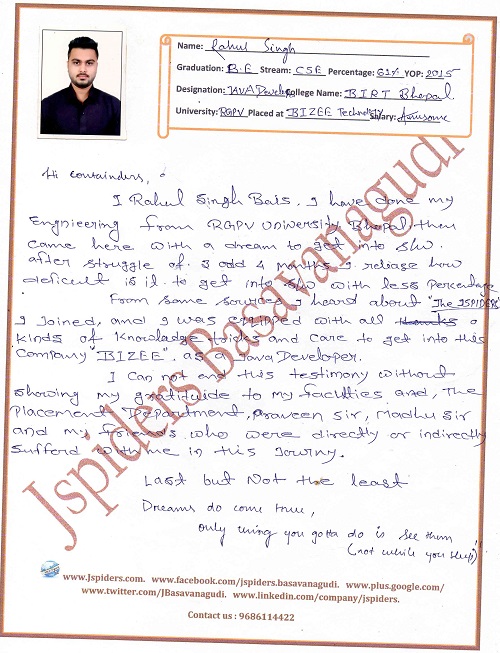 Name: Rahul Singh
Graduation: B.E Stream: CSE Percentage: 61% YOP: 2015
Designation: JAVA Develo College Name: BIRT Bhopal
University: RGPV Placed at BIZEE Technology Salary: Awesome
Hi containders,
I Rahul Singh Bais. I have done my
Engnieering from RGPV University, Bhopal, then
came here with a dream to get into S/W.
after struggle of 3 odd 4 months I release how
deficult is it. to get into S/W with less Percentage
From some sources I heard about "The JSPIDERS
I Joined, and I was equipped with all
kinds of Knowladge tricks and care to get into this
Company "BIZEE". as a Java Developer.
I can not end this testimony without
showing my gratituide to my faculties and, The
Placement Department, Praveen Sir, Madhu Sir
and my friends who were directly or indirectly
Sufferd with me in this Jorny.
Last but Not the least
Dreams do come true,
only thing you gotta do is see them
(not while you sleep)"
Jspiders Basavanagudi
www.Jspiders.com. www.facebook.com/jspiders.basavanagudi. www.plus.google.com/
www.twitter.com/JBasavanagudi. www.linkedin.com/company/jspiders.
Contact us : 9686114422